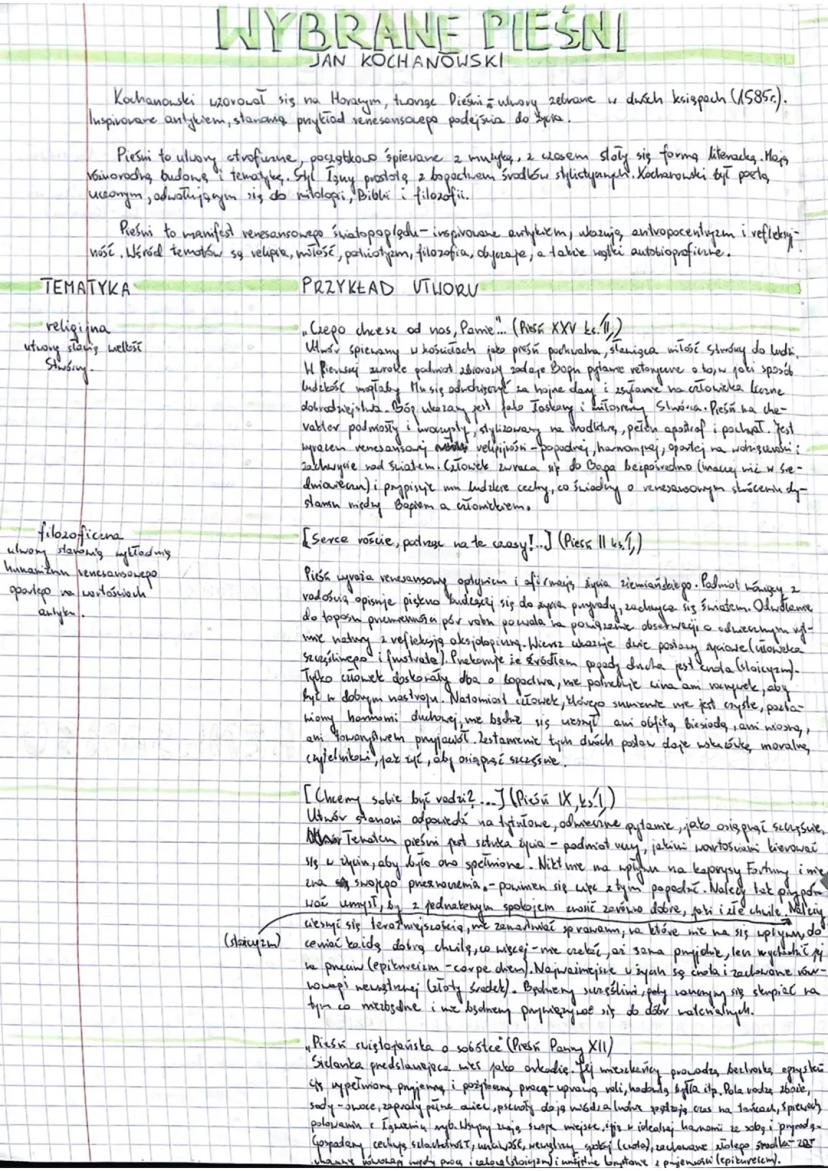 WYBRANE PIEŚNI
JAN KOCHANOWSKI
Kochanowski wzorował się na Horacym, tworząc Pieśni - utwory zebrane w dwóch księgach (1585r.).
Inspirowane antykiem, stanowią przykład renesansowego podejścia do życia.
Pieśni to utwory stroficzne, początkowo śpiewane z muzyką, z czasem stały się formą literacką. Mają
różnorodną budowę i tematykę. Styl łączy prostotę z bogactwem środków stylistycznych. Kochanowski był poetą
uczonym, odwołującym się do mitologii, Biblii i filozofii.
Pieśni to manifest renesansowego światopoglądu - inspirowane antykiem, ukazują antropocentryzm i refleksyj-
ność. Wśród tematów są religia, miłość, patriotyzm, filozofia, obyczaje, a także wątki autobiograficzne.
TEMATYKA
PRZYKŁAD UTWORU
religijna
utwory sławią wielkość
Stwórcy.
„Czego chcesz od nas, Panie"... (Pieśń XXV ks. II,)
Utwór śpiewany w kościołach jako pieśń pochwalna, sławiąca miłość Stwórcy do ludzi.
W pierwszej zwrotce podmiot zbiorowy zadaje Bogu pytanie retoryczne o to, w jaki sposób
ludzkość mogłaby Mu się odwdzięczyć za hojne dary i zsyłanie na człowieka liczne
dobrodziejstwa. Bóg ukazany jest jako łaskawy i miłosierny Stwórca. Pieśń ma cha-
rakter podniosły i uroczysty, stylizowany na modlitwę, pełen apostrof i pochwał. Jest
wyrazem renesansowej religijności - pogodnej, harmonijnej, opartej na wdzięczności i
zachwycie nad światem. Człowiek zwraca się do Boga bezpośrednio (inaczej niż w śre-
dniowieczu) i przypisuje mu ludzkie cechy, co świadczy o renesansowym skróceniu dy-
stansu między Bogiem a człowiekiem.
filozoficzna
utwory stanowią wykładnię
humanizmu renesansowego
opartego na wartościach
antyku.
[Serce roście, patrząc na te czasy!...] (Pieśń II ks. I,)
Pieśń wyraża renesansowy optymizm i afirmację życia ziemiańskiego. Podmiot mówiący z
radością opisuje piękno budzącej się do życia przyrody, zachwyca się światem. Odwołanie
do toposu przemienności pór roku pozwala na połączenie obserwacji o odwiecznym ryt-
mie natury z refleksją aksjologiczną. Wiersz ukazuje dwie postawy życiowe (człowieka
szczęśliwego i frustrata). Przekonuje że źródłem pogody ducha jest cnota (stoicyzm).
Tylko człowiek doskonały dba o bogactwa, nie potrzebuje wina ani rozrywek, aby
być w dobrym nastroju. Natomiast człowiek, którego sumienie nie jest czyste, pozba-
wiony harmonii duchowej, nie będzie się cieszył ani obfitą biesiadą, ani wiosną,
ani towarzystwem przyjaciół. Zestawienie tych dwóch postaw daje wskazówkę moralną
czytelnikowi, jak żyć, aby osiągnąć szczęście.
[Chcemy sobie być radzi?...] (Pieśń IX, ks. I,)
Utwór stanowi odpowiedź na tytułowe, odwieczne pytanie, jako osiągnąć szczęście.
Tematem pieśni jest sztuka życia - podmiot uczy, jakimi wartościami kierować
się w życiu, aby było ono spełnione. Nikt nie ma wpływu na kaprysy Fortuny i nie
zna swojego przeznaczenia, - powinien się więc z tym pogodzić. Należy tak przygoto-
wać umysł, by z jednakowym spokojem znosić zarówno dobre, jak i złe chwile. Należy
(stoicyzm)
cieszyć się teraźniejszością, nie zamartwiać sprawami, na które nie ma się wpływu, do
ceniać każdą dobrą chwilę, co więcej - nie czekać, aż sama przyjdzie, lecz wychodzić jej
na przeciw (epikureizm - carpe diem). Najważniejsze w życiu są cnota i zachowanie rów-
nowagi wewnętrznej (złoty środek). Będziemy szczęśliwi, gdy zaczniemy się skupiać na
tym co niezbędne i nie będziemy przywiązywać się do dóbr materialnych.
„Pieśń świętojańska o sobótce" (Pieśń Panny XII)
Sielanka przedstawiająca wieś jako arkadię. Jej mieszkańcy prowadzą beztroską egzysten
cję wypełnioną przyjemną i pożyteczną pracą - uprawą roli, hodowlą bydła itp. Pola rodzą zboże,
sady - owoce, zagrody pełne owiec, pszczoły dają miód, a ludzie spędzają czas na tańcach, śpiewach,
polowaniu i łowieniu ryb. Wszyscy znają swoje miejsce, żyją w idealnej harmonii ze sobą i przyrodą.
Gospodarzy cechuje szlachetność, uczciwość, wewnętrzny spokój (cnota), zachowanie złotego środka -
równowagi między pracą i zabawą (stoicyzm) i umiejętne korzystanie z przyjemności (epikureizm).